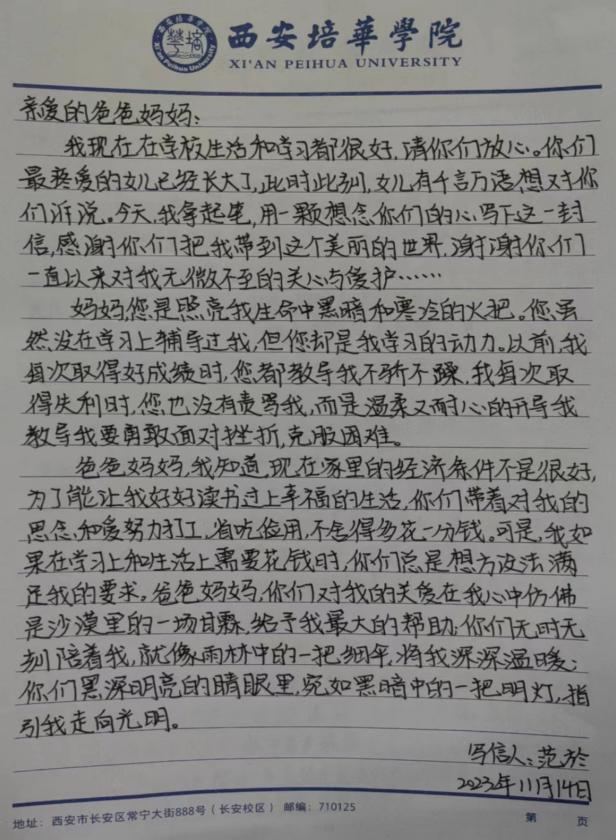 西安培華學院
XI'AN PEIHUA UNIVERSITY
亲爱的爸爸妈妈：
我现在在学校生活和学习都很好,请你们放心。你们
最疼爱的女儿已经长大了,此时此刻,女儿有千言万语想对你
们诉说。今天,我拿起笔,用一颗想念你们的心写下这一封
信,感谢你们把我带到这个美丽的世界,谢谢你们
一直以来对我无微不至的关心与爱护……
妈妈,您是照亮我生命中黑暗和寒冷的火把。您虽
然没在学习上辅导过我,但您却是我学习的动力。以前,我
每次取得好成绩时,您都教导我不骄不躁,我每次取
得失利时,您也没有责骂我,而是温柔又耐心的开导我
教导我要勇敢面对挫折,克服困难。
爸爸妈妈,我知道,现在家里的经济条件不是很好,
为了能让我好好读书过上幸福的生活,你们带着对我的
思念,和爱努力打工,省吃俭用,不舍得多花一分钱。可是,我如
果在学习上和生活上需要花钱时,你们总是想方设法满
足我的要求。爸爸妈妈,你们对我的关爱在我心中仿佛
是沙漠里的一场甘霖,给予我最大的帮助;你们无时无
刻陪着我,就像雨林中的一把细伞,将我深深温暖;
你们黑深明亮的睛眼里,宛如黑暗中的一把明灯,指
引我走向光明。
写信人:范於
2023年11月14日
地址：西安市长安区常宁大街888号（长安校区） 邮编：710125
第 页